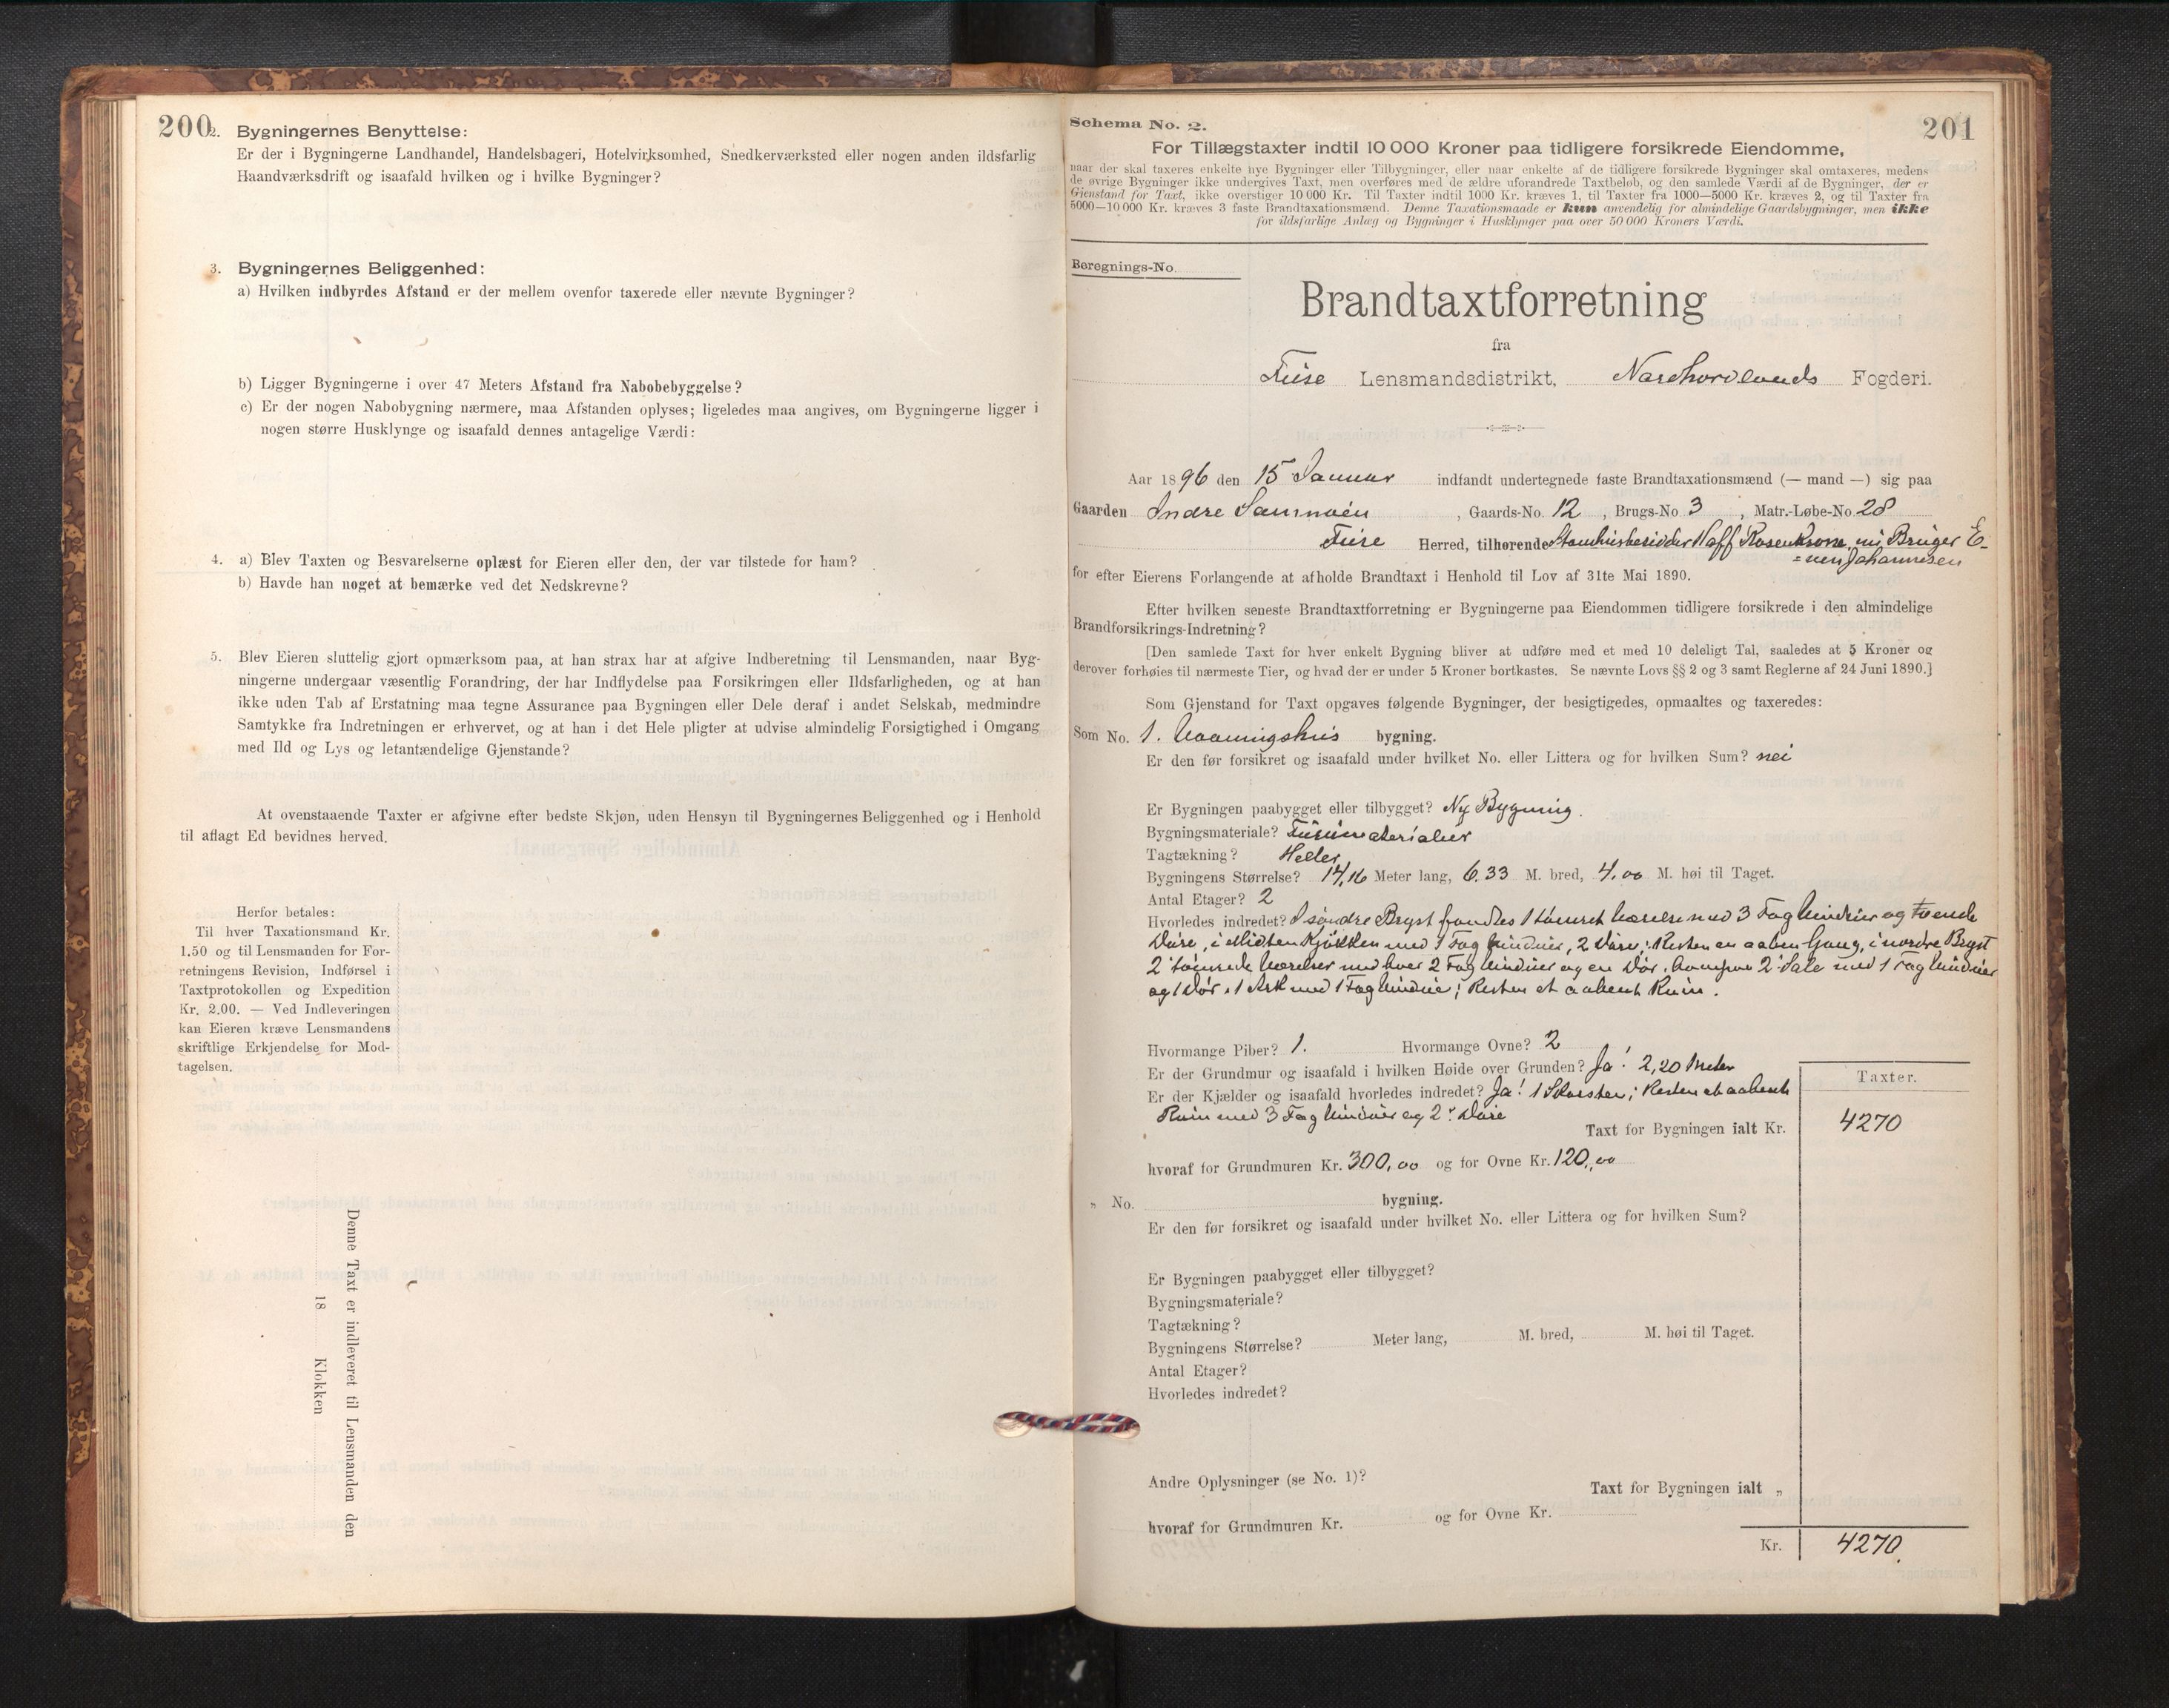 200
2. Bygningernes Benyttelse:
Er der i Bygningerne Landhandel, Handelsbageri, Hotelvirksomhed, Snedkerværksted eller nogen anden ildsfarlig
Haandværksdrift og isaafald hvilken og i hvilke Bygninger?
3. Bygningernes Beliggenhed:
a) Hvilken indbyrdes Afstand er der mellem ovenfor taxerede eller nævnte Bygninger?
b) Ligger Bygningerne i over 47 Meters Afstand fra Nabobebyggelse?
c) Er der nogen Nabobygning nærmere, maa Afstanden oplyses; ligeledes maa angives, om Bygningerne ligger i
nogen større Husklynge og isaafald dennes antagelige Værdi:
4. a) Blev Taxten og Besvarelserne oplæst for Eieren eller den, der var tilstede for ham?
b) Havde han noget at bemærke ved det Nedskrevne?
5. Blev Eieren sluttelig gjort opmærksom paa, at han strax har at afgive Indberetning til Lensmanden, naar Byg-
ningerne undergaar væsentlig Forandring, der har Indflydelse paa Forsikringen eller Ildsfarligheden, og at han
ikke uden Tab af Erstatning maa tegne Assurance paa Bygningen eller Dele deraf i andet Selskab, medmindre
Samtykke fra Indretningen er erhvervet, og at han i det Hele pligter at udvise almindelig Forsigtighed i Omgang
med Ild og Lys og letantændelige Gjenstande?
At ovenstaaende Taxter er afgivne efter bedste Skjøn, uden Hensyn til Bygningernes Beliggenhed og i Henhold
til aflagt Ed bevidnes herved.
Herfor betales:
Til hver Taxationsmand Kr.
1.50 og til Lensmanden for For-
retningens Revision, Indførsel i
Taxtprotokollen og Expedition
Kr. 2.00. — Ved Indleveringen
kan Eieren kræve Lensmandens
skriftlige Erkjendelse for Mod-
tagelsen.
Denne Taxt er indleveret til Lensmanden den
18 Klokken
201
Schema No. 2.
For Tillægstaxter indtil 10 000 Kroner paa tidligere forsikrede Eiendomme,
naar der skal taxeres enkelte nye Bygninger eller Tilbygninger, eller naar enkelte af de tidligere forsikrede Bygninger skal omtaxeres, medens
de øvrige Bygninger ikke undergives Taxt, men overføres med de ældre uforandrede Taxtbeløb, og den samlede Værdi af de Bygninger, der er
Gjenstand for Taxt, ikke overstiger 10 000 Kr. Til Taxter indtil 1000 Kr. kræves 1, til Taxter fra 1000—5000 Kr. kræves 2, og til Taxter fra
5000—10 000 Kr. kræves 3 faste Brandtaxationsmænd. Denne Taxationsmaade er kun anvendelig for almindelige Gaardsbygninger, men ikke
for ildsfarlige Anlæg og Bygninger i Husklynger paa over 50 000 Kroners Værdi.
Beregnings-No.
Brandtaxtforretning
fra
Fuse Lensmandsdistrikt, Nordhordlands Fogderi.
Aar 1896 den 15 Januar indfandt undertegnede faste Brandtaxationsmænd (— mand —) sig paa
Gaarden Indre Sammøen, Gaards-No. 12, Brugs-No 3, Matr.-Løbe-No. 28
Fuse Herred, tilhørende Stamhusbesidder Hoff Rosenkrone, nu Bruger E-
=nen Johannesen
for efter Eierens Forlangende at afholde Brandtaxt i Henhold til Lov af 31te Mai 1890.
Efter hvilken seneste Brandtaxtforretning er Bygningerne paa Eiendommen tidligere forsikrede i den almindelige
Brandforsikrings-Indretning?
[Den samlede Taxt for hver enkelt Bygning bliver at udføre med et med 10 deleligt Tal, saaledes at 5 Kroner og
derover forhøies til nærmeste Tier, og hvad der er under 5 Kroner bortkastes. Se nævnte Lovs §§ 2 og 3 samt Reglerne af 24 Juni 1890.]
Som Gjenstand for Taxt opgaves følgende Bygninger, der besigtigedes, opmaaltes og taxeredes:
Som No. 1. Vaaningshus bygning.
Er den før forsikret og isaafald under hvilket No. eller Littera og for hvilken Sum? nei
Er Bygningen paabygget eller tilbygget? Ny Bygning.
Bygningsmateriale? Furumaterialier
Tagtækning? Heller
Bygningens Størrelse? 14,16 Meter lang, 6.33 M. bred, 4.00 M. høi til Taget.
Antal Etager? 2
Hvorledes indredet? I søndre Bryst fandtes 1 tømret Værelse med 3 Fag Vinduer og tvende
Døre, i Midten Kjøkken med 1 Fag Vinduer, 2 Døre; Resten en aaben Gang, i nordre Bryst
2 tømrede Værelser med hver 2 Fag Vinduer og en Dør. Ovenpaa 2 Sale med 1 Fag Vinduer
og 1 Dør. 1 Ark med 1 Fag Vindue; Resten et aabent Rum.
Hvormange Piber? 1. Hvormange Ovne? 2
Er der Grundmur og isaafald i hvilken Høide over Grunden? Ja! 2,20 Meter
Er der Kjælder og isaafald hvorledes indredet? Ja! 1 Skorsten; Resten et aabent
Rum med 3 Fag Vinduer og 2 Døre
Taxter.
Taxt for Bygningen ialt Kr. 4270
hvoraf for Grundmuren Kr. 300,00 og for Ovne Kr. 120,00
„ No. bygning.
Er den før forsikret og isaafald under hvilket No. eller Littera og for hvilken Sum?
Er Bygningen paabygget eller tilbygget?
Bygningsmateriale?
Tagtækning?
Bygningens Størrelse? Meter lang, M. bred, M. høi til Taget.
Antal Etager?
Hvorledes indredet?
Andre Oplysninger (se No. 1)?
Taxt for Bygningen ialt „
hvoraf for Grundmuren Kr. og for Ovne Kr.
Kr. 4270.